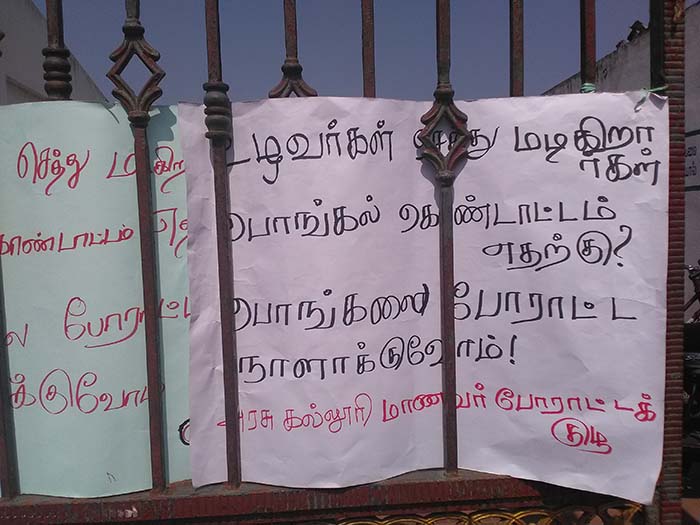 செத்து
காண்டாட்டம்
ல போராட்
க்குவோம்
உழவர்கள் செத்து மடிகிறா
ர்கள்
பொங்கல் கொண்டாட்டம்
எதற்கு?
பொங்கலை போராட்ட
நாளாக்குவோம்!
அரசு கல்லூரி மாணவர் போராட்டக்
குழு